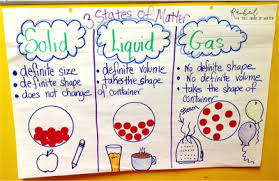 3 States of Matter
Solid
• definite size
• definite shape
• does not change
Liquid
• definite volume
• takes the shape
of container
Gas
• No definite shape
• No definite volume
• takes the shape of
container